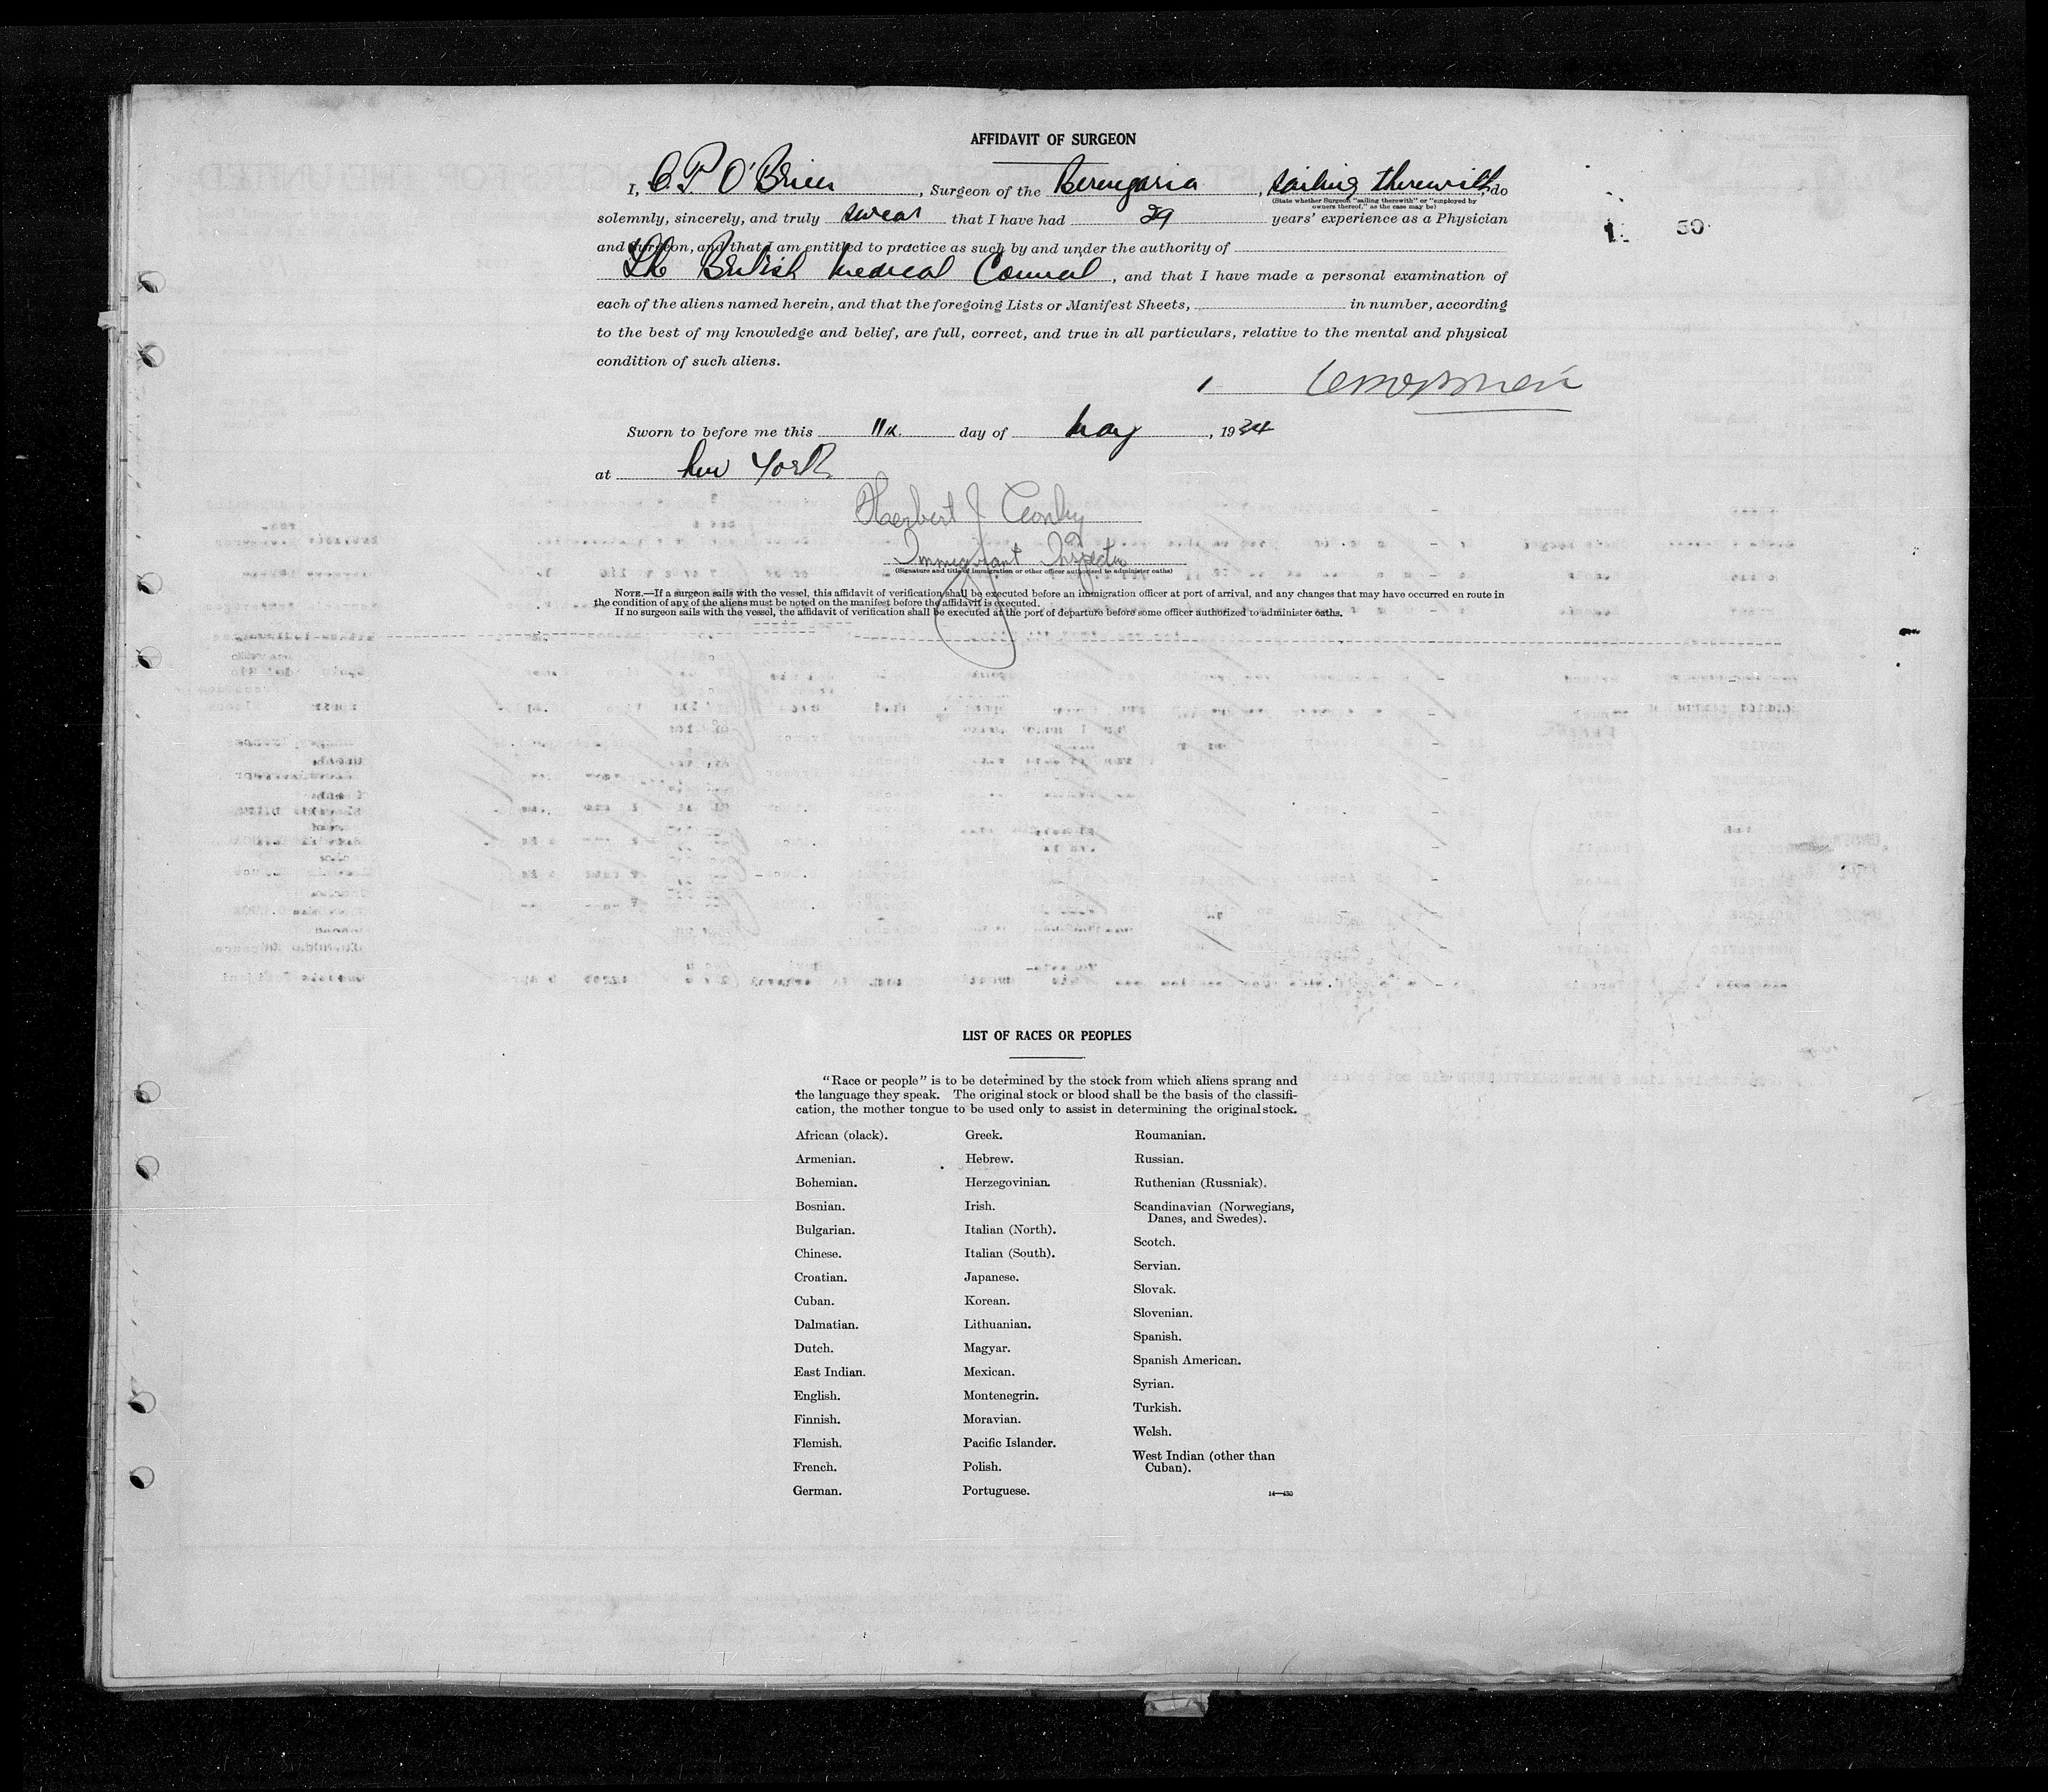 AFFIDAVIT OF SURGEON
I, C.P. O'Brien, Surgeon of the Berengaria, sailing therewith, do
(State whether Surgeon "sailing therewith" or "employed by
owners thereof," as the case may be)
solemnly, sincerely, and truly swear that I have had 29 years' experience as a Physician
and Surgeon, and that I am entitled to practice as such by and under the authority of
The British Medical Council, and that I have made a personal examination of
each of the aliens named herein, and that the foregoing Lists or Manifest Sheets, in number, according
to the best of my knowledge and belief, are full, correct, and true in all particulars, relative to the mental and physical
condition of such aliens.
1 50
Sworn to before me this 11th day of May, 1934
at New York
Herbert J
Immigrant Inspector
(Signature and title of immigration or other officer authorized to administer oaths)
NOTE.—If a surgeon sails with the vessel, this affidavit of verification shall be executed before an immigration officer at port of arrival, and any changes that may have occurred en route in
the condition of any of the aliens must be noted on the manifest before the affidavit is executed.
If no surgeon sails with the vessel, the affidavit of verification shall be executed at the port of departure before some officer authorized to administer oaths.
LIST OF RACES OR PEOPLES
"Race or people" is to be determined by the stock from which aliens sprang and
the language they speak. The original stock or blood shall be the basis of the classifi-
cation, the mother tongue to be used only to assist in determining the original stock.
African (black).
Armenian.
Bohemian.
Bosnian.
Bulgarian.
Chinese.
Croatian.
Cuban.
Dalmatian.
Dutch.
East Indian.
English.
Finnish.
Flemish.
French.
German.
Greek.
Hebrew.
Herzegovinian.
Irish.
Italian (North).
Italian (South).
Japanese.
Korean.
Lithuanian.
Magyar.
Mexican.
Montenegrin.
Moravian.
Pacific Islander.
Polish.
Portuguese.
Roumanian.
Russian.
Ruthenian (Russniak).
Scandinavian (Norwegians,
Danes, and Swedes).
Scotch.
Servian.
Slovak.
Slovenian.
Spanish.
Spanish American.
Syrian.
Turkish.
Welsh.
West Indian (other than
Cuban).